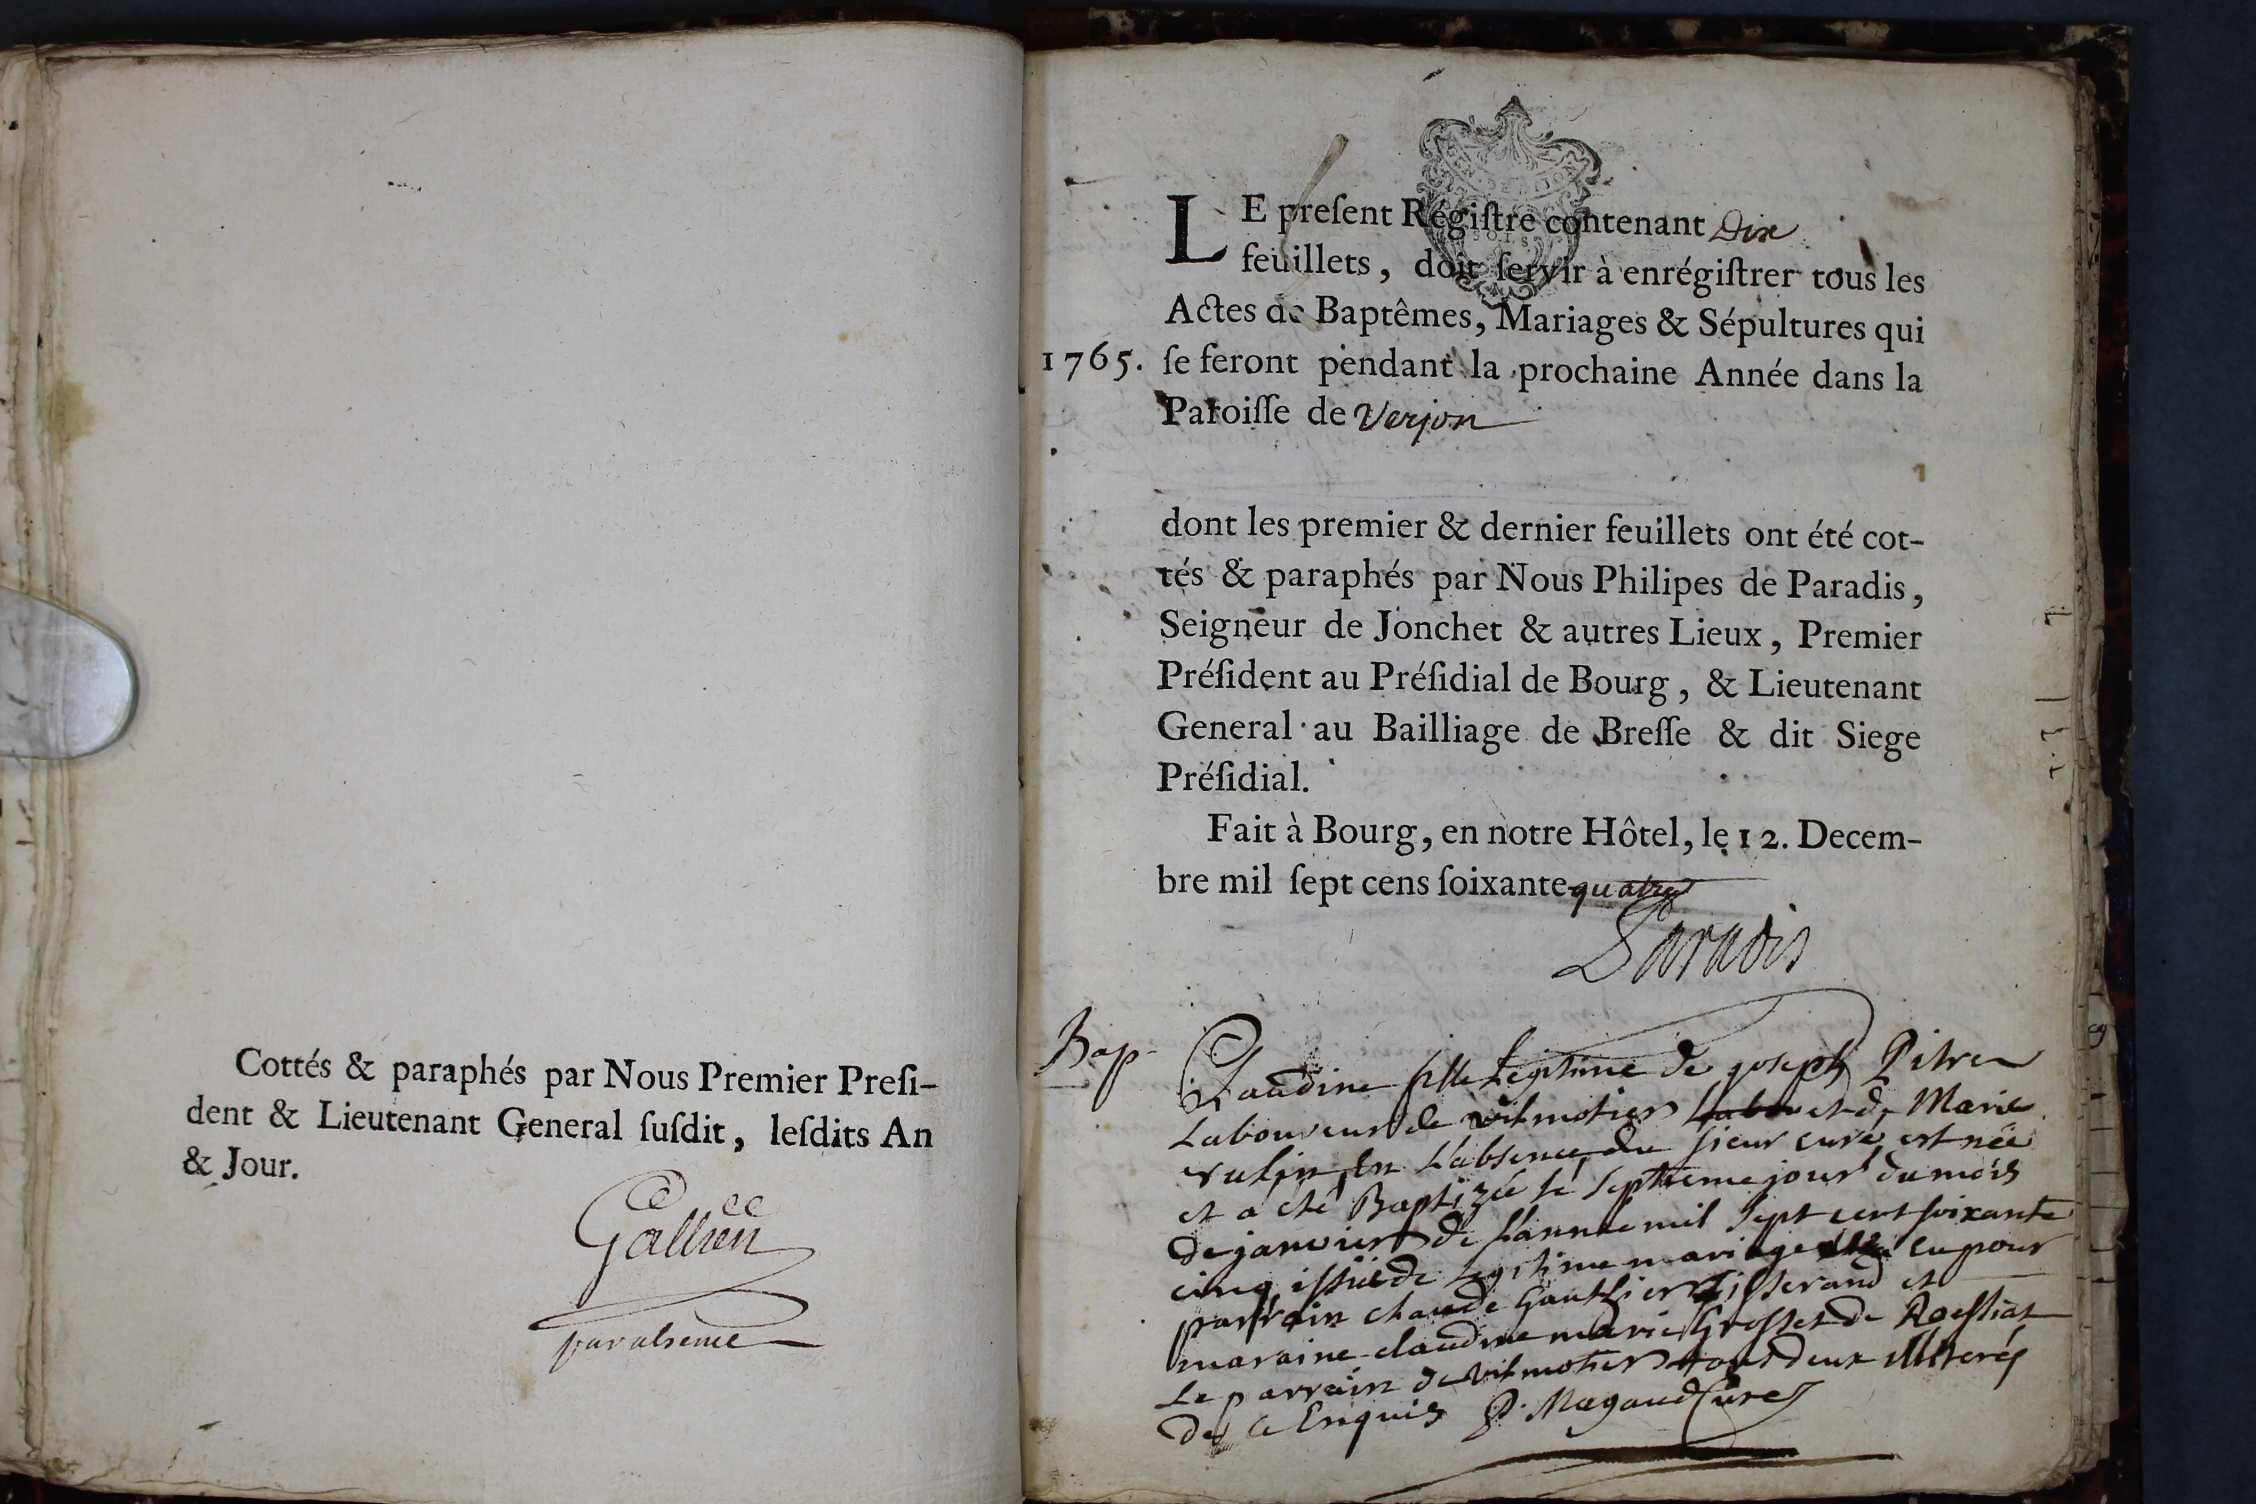 Cottés & paraphés par Nous Premier Presi-
dent & Lieutenant General susdit, lesdits An
& Jour.
Gallien
par absence
LE present Régistre contenant Dix
feuillets, doit servir à enrégistrer tous les
Actes de Baptêmes, Mariages & Sépultures qui
1765. se feront pendant la prochaine Année dans la
Paroisse de Verjon
dont les premier & dernier feuillets ont été cot-
tés & paraphés par Nous Philipes de Paradis,
Seigneur de Jonchet & autres Lieux, Premier
Président au Présidial de Bourg, & Lieutenant
General au Bailliage de Bresse & dit Siege
Présidial.
Fait à Bourg, en notre Hôtel, le 12. Decem-
bre mil sept cens soixante quatre
Paradis
Bap
Claudine fille Legitime de joseph Pitre
Laboureur de vilmotier et de Marie
en L'absence du sieur curé, est née
et a été Baptizée le septieme jour du mois
de janvier de L'année mil sept cent soixante
cinq issüe de Legitime mariage eu pour
parrain claude Gauthier Tisserand et
maraine claudine marie Grosset de Roessiat
Le parrain de vilmotier tous deux illiterés
de ce Enquis P. Magaud Curé